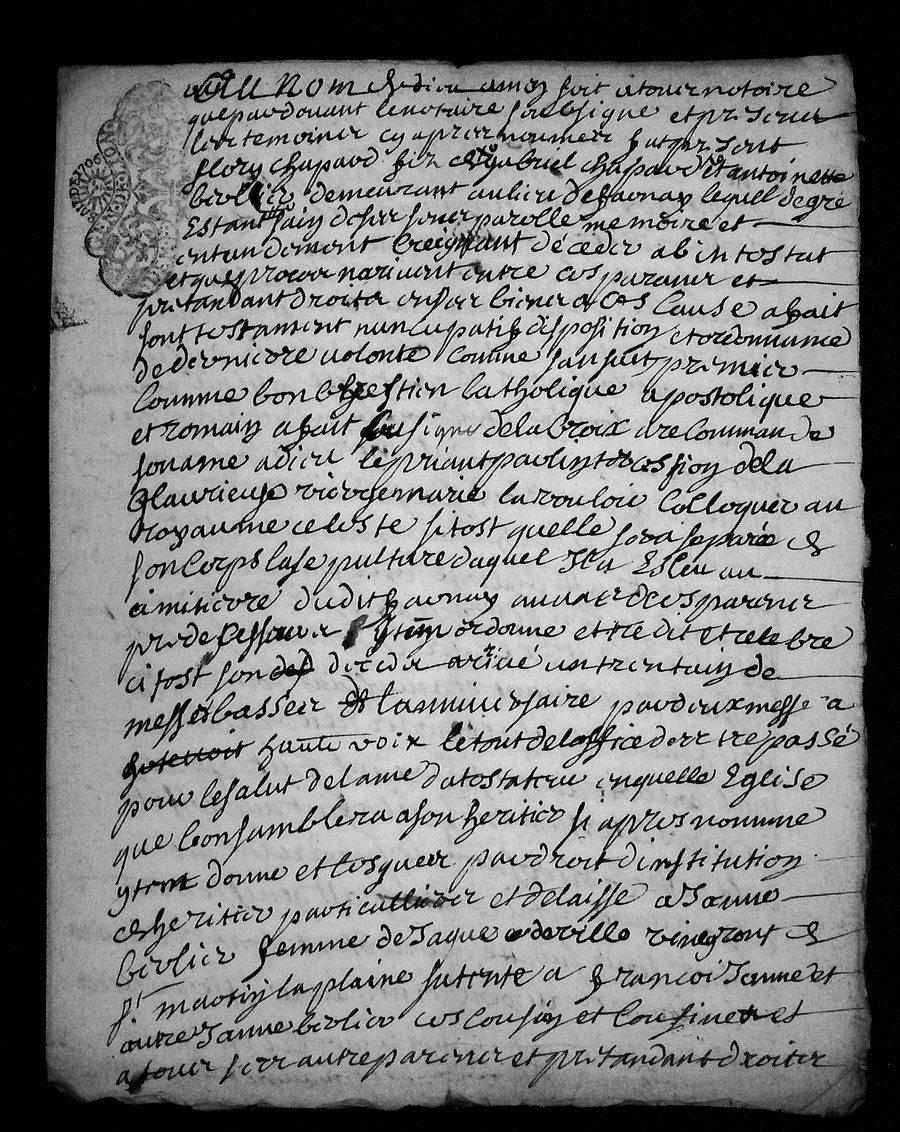 Au Nom de dieu amen soit a tous notoire
que pardevant le notaire soubsigné et presens
les temoines cy apres nommes fut present
flory chapard fils de gabriel chapard et antoinette
berlier demeurant au lieu de farnay lequel de gre
Estant sain de ses sens parolle memoire et
entandement creignant deceder abintestat
et que proces narrivent entre ces parans et
pretandant droits en ses biens a ces Cause a fait
son testament nuncupatif disposition et ordonnance
de derniere volonte Comme sansuit premier
Comme bon Chrestien Catholique apostolique
et romain a fait le signe de la Croix a recommande
son ame a dieu le priant par lyntercession de la
glaurieuse vierge marie la vouloir Colloquer au
royaume celeste sitost quelle sera separée de
son Corps la sepulture duquel Il a Esleu au
cimitiere dudit farnay au vas de ces parans
predecesseurs ytem ordonne etre dit et celebre
ci tost son deces arivé un trentain de
messes basses et lanniversaire par deux messe a
haute voix le tout de loffice des trepassé
pour le salut de lame du testateur en quelle Eglise
que bon samblera a son heritier si apres nomme
ytem donne et legue par droit dinstitution
et heritier particullier et delaisse a Janne
berlier femme de Jaque deville vigneront de
st martin la plaine sa tente a francoi Janne et
autre Janne berlier ces Cousin et Cousines et
a tous ses autre parans et pretandant droits